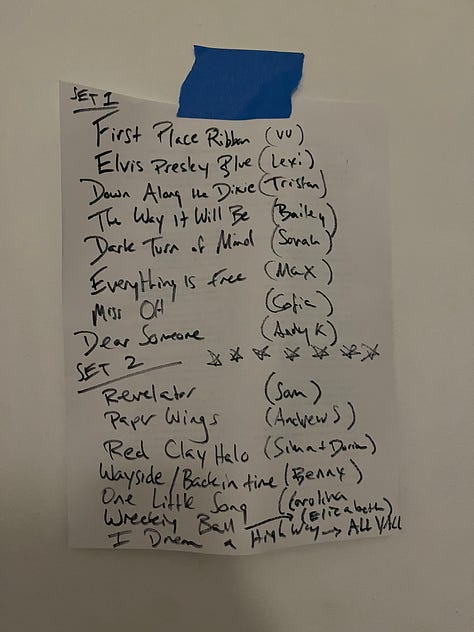 SET 1
First Place Ribbon (VV)
Elvis Presley Blue (Lexi)
Down Along the Dixie (Tristan)
The Way It Will Be (Bailey)
Dark Turn of Mind (Sarah)
Everything Is Free (Max)
Miss Oh (Catia)
Dear Someone (Andy K)
SET 2
Revelator (Sam)
Paper Wings (Andrew S)
Red Clay Halo (Simon + Dorian)
Wayside/Back in time (Benny)
One Little Song (Carolina
Wrecking Ball (Elizabeth)
I Dream a Highway → ALL Y'ALL